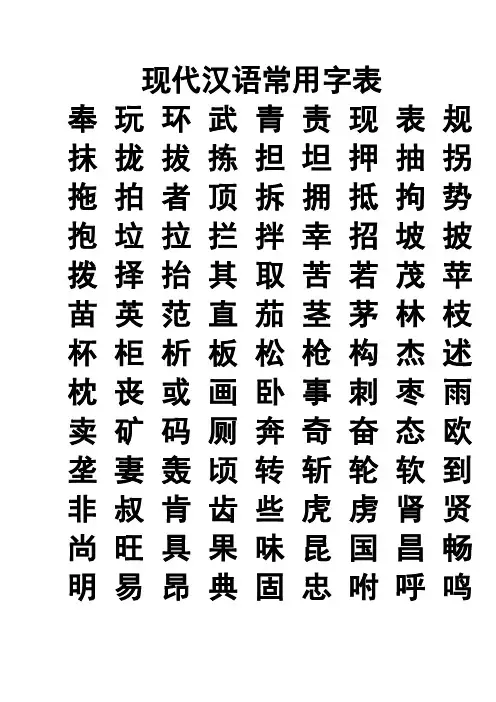 现代汉语常用字表
奉 玩 环 武 青 责 现 表 规
抹 拢 拔 拣 担 坦 押 抽 拐
拖 拍 者 顶 拆 拥 抵 拘 势
抱 垃 拉 拦 拌 幸 招 坡 披
拨 择 抬 其 取 苦 若 茂 苹
苗 英 范 直 茄 茎 茅 林 枝
杯 柜 析 板 松 枪 构 杰 述
枕 丧 或 画 卧 事 刺 枣 雨
卖 矿 码 厕 奔 奇 奋 态 欧
垄 妻 轰 顷 转 斩 轮 软 到
非 叔 肯 齿 些 虎 虏 肾 贤
尚 旺 具 果 味 昆 国 昌 畅
明 易 昂 典 固 忠 咐 呼 鸣